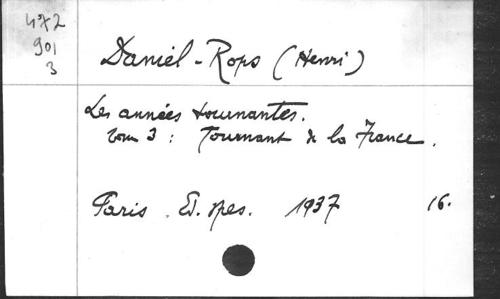 472
901
3
Daniel-Rops (Henri)
Les années tournantes.
Tom 3 : Tournant de la France.
Paris. Ed. Spes. 1937 16.